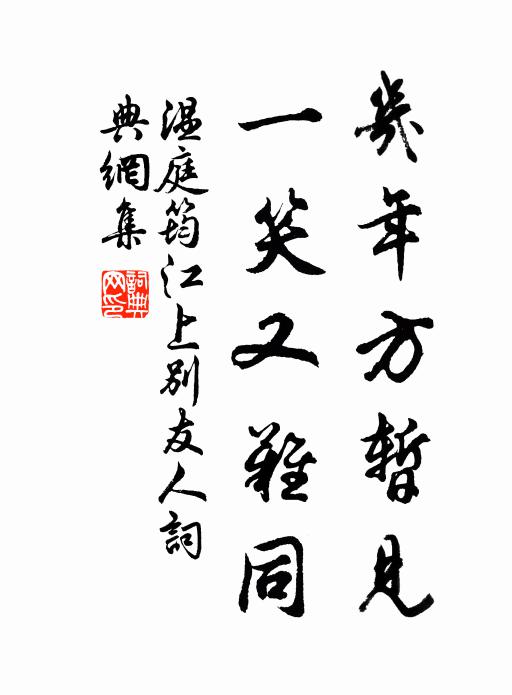 幾年方暫見
一笑又難同
溫庭筠江上別友人詞
典網集
詞典网印